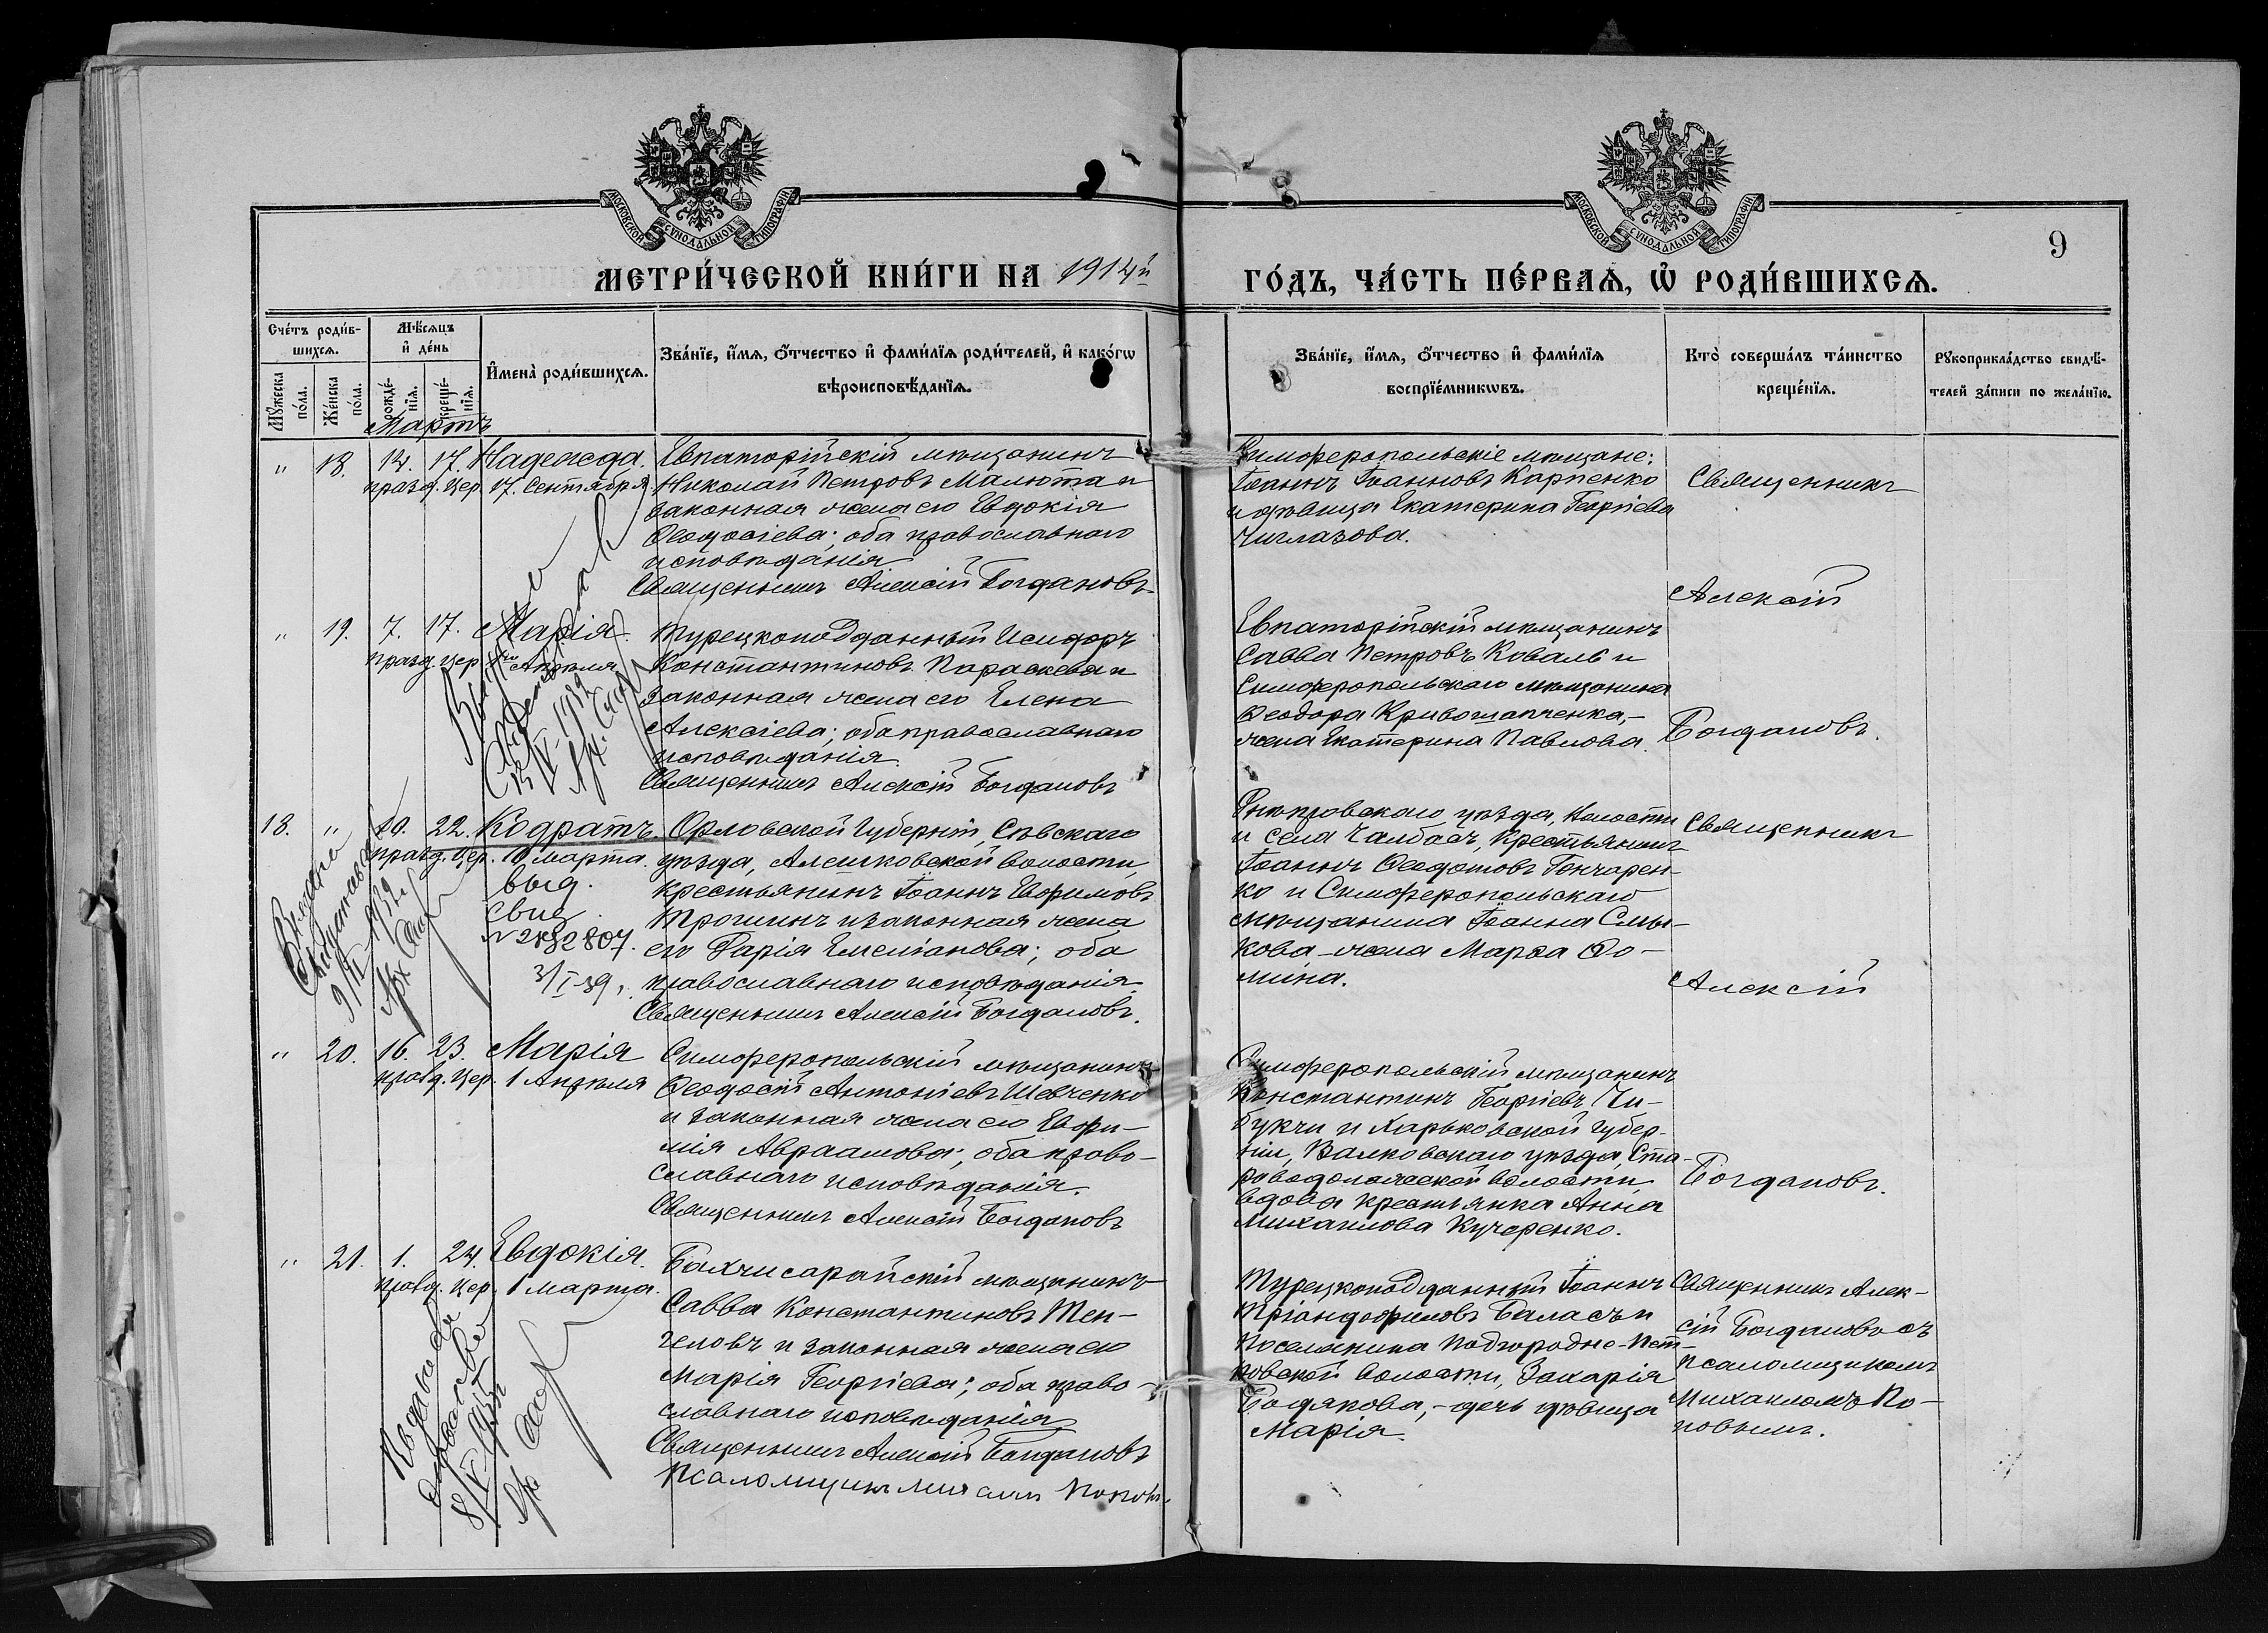 МОСКОВСКОЙ СѴНОДАЛЬНОЙ ТИПОГРАФІИ
МОСКОВСКОЙ СѴНОДАЛЬНОЙ ТИПОГРАФІИ
9
МЕТРИ́ЧЕСКОЙ КНИ́ГИ НА 1914й
ГО́ДЪ, ЧА́СТЬ ПЕ́РВАѦ, Ѽ РОДИ́ВШИХСѦ.
Сче́тъ роди́в-
шихсѧ.
Мѣ́сѧцъ
и҆ де́нь
И҆мена̀ роди́вшихсѧ.
Зва́нїе, и҆́мѧ, ѻ҆́тчество и҆ фами́лїѧ роди́телей, и҆ како́гѡ
вѣроисповѣ́данїѧ.
Зва́нїе, и҆́мѧ, ѻ҆́тчество и҆ фами́лїѧ
воспрїе́мникѡвъ.
Кто̀ соверша́лъ та́инство
креще́нїѧ.
Рꙋкоприкла́дство свидѣ́-
телей за́писи по жела́нїю.
Мꙋ́жеска
по́ла.
Же́нска
по́ла.
рожде́-
нїѧ.
креще́-
нїѧ.
Мартъ
" 18. 14. 17. Надежда.
празд. цер. 17. Сентября
Евпаторійскій мѣщанинъ
Николай Петровъ Малюта и
законная жена его Евдокія
Ѳеодосіева; оба православнаго
исповѣданія
Священникъ Алексій Богдановъ
Симферопольскіе мѣщане:
Іоаннъ Іоанновъ Карпенко
и дѣвица Екатерина Георгіева
Чиглазова.
Священникъ
Алексій
Богдановъ.
" 19. 7. 17. Марія.
празд. цер. 1го Апрѣля
Турецкоподданный Исидоръ
Константиновъ Параскева и
законная жена его Елена
Алексіева; оба православнаго
исповѣданія.
Священникъ Алексій Богдановъ
Евпаторійскій мѣщанинъ
Савва Петровъ Коваль и
Симферопольскаго мѣщанина
Ѳеодора Кривошапченка,-
жена Екатерина Павлова.
18. " 10. 22. Кодратъ.
празд. цер. 10 марта.
выд.
свид.
3/I-39.
Выдано
9/II 1932 г.
Арх.
Орловской губерніи, Сѣвскаго
уѣзда, Алешковской волости,
крестьянинъ Іоаннъ Евфимовъ
Трошинъ и законная жена
его Дарія Емеліанова; оба
православнаго исповѣданія.
Священникъ Алексій Богдановъ.
Днѣпровскаго уѣзда, волости
и села Чалбасъ, крестьянинъ
Іоаннъ Ѳеодотовъ Гончарен-
ко и Симферопольскаго
мѣщанина Іоанна Смы-
кова-жена Марѳа Ѳо-
мина.
Священникъ
Алексій
Богдановъ.
" 20. 16. 23. Марія
празд. цер. 1 Апрѣля
Симферопольскій мѣщанинъ
Ѳеодосій Антоніевъ Шевченко
и законная жена его Евфи-
мія Авраамова; оба право-
славнаго исповѣданія.
Священникъ Алексій Богдановъ
Симферопольскій мѣщанинъ
Константинъ Георгіевъ Чи-
букчи и Харьковской губер-
ніи, Валковскаго уѣзда, Ста-
роводолажской волости,
вдова крестьянка Анна
Михаилова Кучеренко.
" 21. 1. 24. Евдокія.
празд. цер. 1 марта.
Бахчисарайскій мѣщанинъ
Савва Константиновъ Тен-
геловъ и законная жена его
Марія Георгіева; оба право-
славнаго исповѣданія
Священникъ Алексій Богдановъ
Псаломщикъ Михаилъ Поповъ.
Турецкоподданный Іоаннъ
Тріандофиловъ Баласъ и
поселянина Подгородне-Пет-
ровской волости, Захарія
Бодякова,-дочь дѣвица
Марія.
Священникъ Алек-
сій Богдановъ съ
псаломщикомъ
Михаиломъ По-
повымъ.